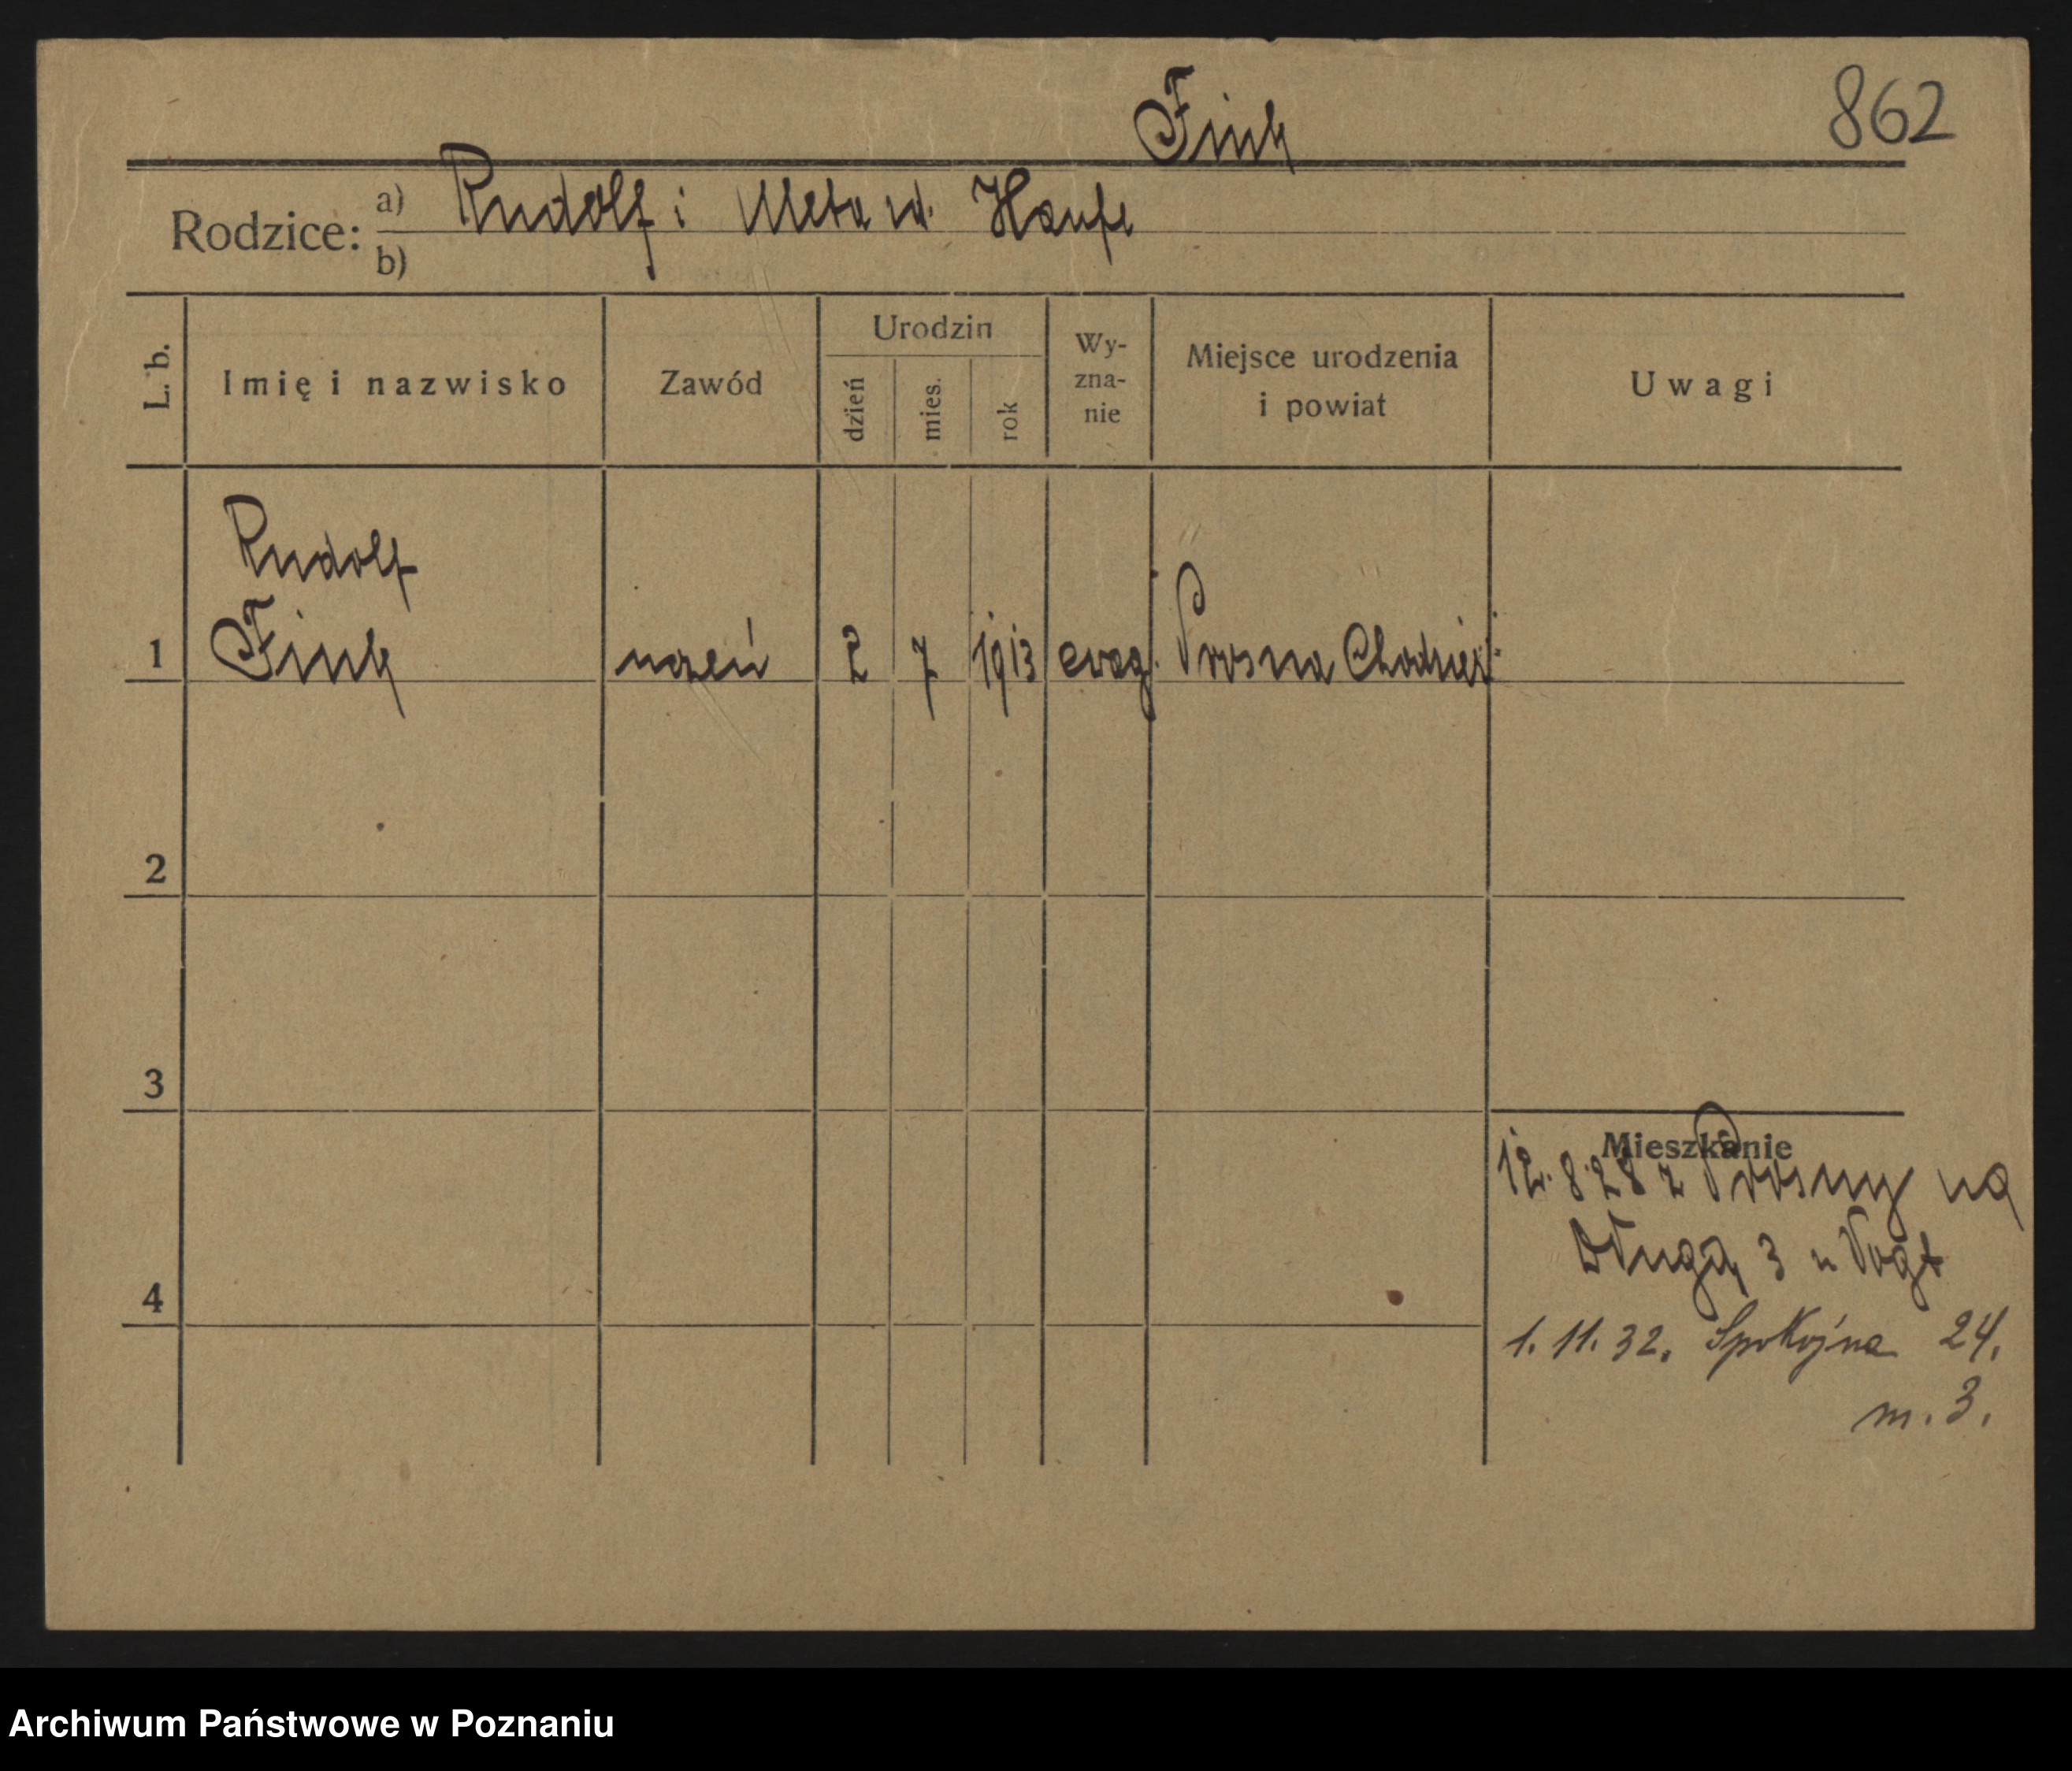 862
Fink
Rodzice: a) Rudolf i Meta ur. Haufe
b)
L. b. Imię i nazwisko Zawód Urodzin dzień mies. rok Wy-zna-nie Miejsce urodzenia i powiat Uwagi
Rudolf
1 Fink uczeń 2 7 1913 ewag. Prosna Chodzież
2
3
Mieszkanie
12.8.28 z Prosny na
Długą 3 u Vogt
4
1.11.32. Spokojna 24.
m. 3.
Archiwum Państwowe w Poznaniu